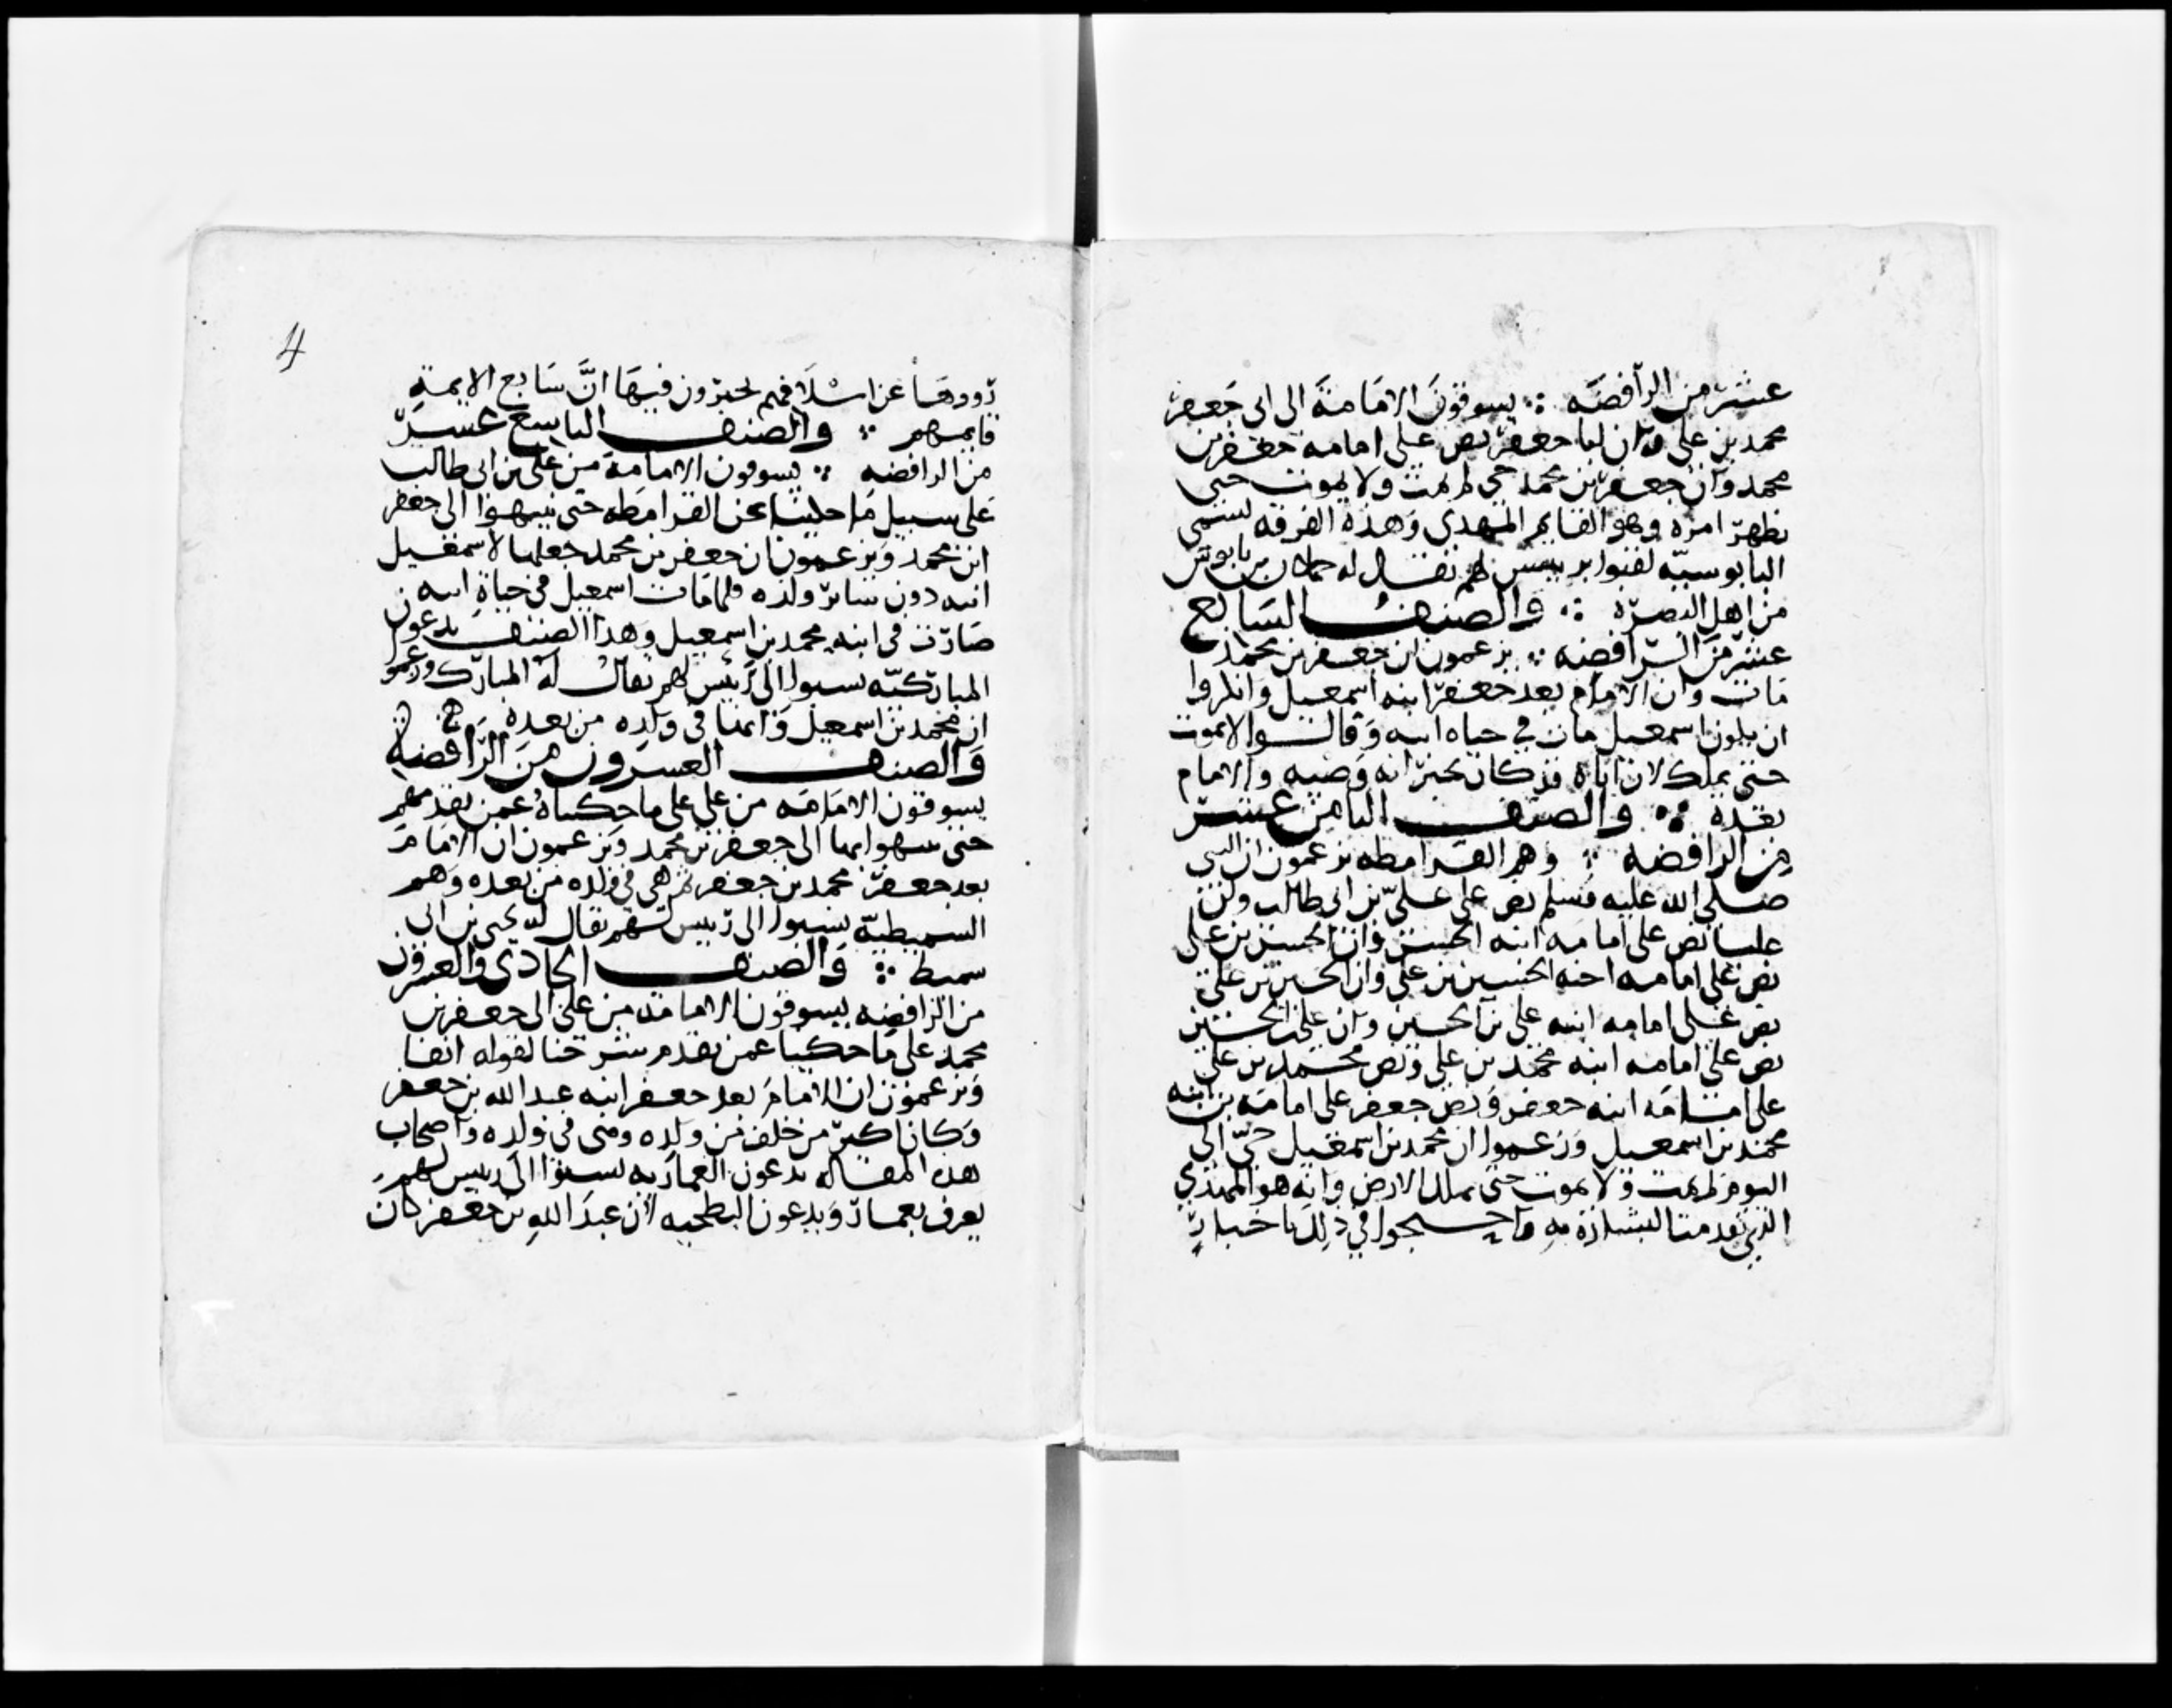 عشر من الرافضه ∴ يسوقون الامامة الى ابى جعفر
محمد بن على وان ابا جعفر نص على امامه جعفر بن
محمد وان جعفر بن محمد حى لم يمت ولا يموت حتى
يظهر امره وهو القايم المهدى وهذه الفرقه تسمى
لهم يقال له
من اهل البصرة ∴ والصنف السابع
عشر من الرافضه ∴ يزعمون ان جعفر بن محمد
مات وان الامام بعد جعفر ابنه اسمعيل وانكروا
ان يكون اسمعيل مات في حياه ابيه وقالوا لا يموت
حتى يملك لان اباه قد كان يخبر انه وصيه والامام
بعده ∴ والصنف الثامن عشر
من الرافضه ∴ وهم القرامطه يزعمون ان النبي
صلى الله عليه وسلم نص على على بن ابى طالب وان
عليا نص على امامه ابنه الحسن وان الحسن بن على
نص على امامه اخيه الحسين بن على وان الحسين بن على
نص على امامه ابنه على بن الحسين وان على بن الحسين
نص على امامه ابنه محمد بن على ونص محمد بن على
على امامه ابنه جعفر ونص جعفر على امامه بن ابنه
محمد بن اسمعيل وزعموا ان محمد بن اسمعيل حى الى
اليوم لم يمت ولا يموت حتى يملك الارض وانه هو المهدي
الذي تقدمت البشارة به واحتجوا في ذلك باخبار
4
رووها عن اسلافهم يخبرون فيها ان سابع الايمة
قايمهم ∴ والصنف التاسع عشر
من الرافضه ∴ يسوقون الامامة من على بن ابى طالب
على سبيل ما حكينا عن القرامطه حتى ينتهوا الى جعفر
ابن محمد ويزعمون ان جعفر بن محمد جعلها لاسمعيل
ابنه دون ساير ولده فلما مات اسمعيل فى حياة ابيه
صارت فى ابنه محمد بن اسمعيل وهذا الصنف يدعون
المباركيه نسبوا الى رئيس لهم يقال له المبارك وزعموا
ان محمد بن اسمعيل وانها فى ولده من بعده
والصنف العشرون من الرافضة
يسوقون الامامه من على على ما حكيناه عمن تقدمهم
حتى ينتهوا بها الى جعفر بن محمد ويزعمون ان الامام
بعد جعفر محمد بن جعفر ثم هى فى ولده من بعده وهم
السميطية نسبوا الى رييس لهم يقال له يحيى بن ابى
سميط ∴ والصنف الحادى والعشرون
من الرافضه يسوقون الامامة من على الى جعفر بن
محمد على ما حكينا عمن تقدم شرحنا لقوله انفا
ويزعمون ان الامام بعد جعفر ابنه عبد الله بن جعفر
وكان اكبر من خلف من ولده وهى فى ولده واصحاب
هذه المقاله يدعون العماريه نسبوا الى رييس لهم
يعرف بعمار ويدعون البطحيه لان عبد الله بن جعفر كان